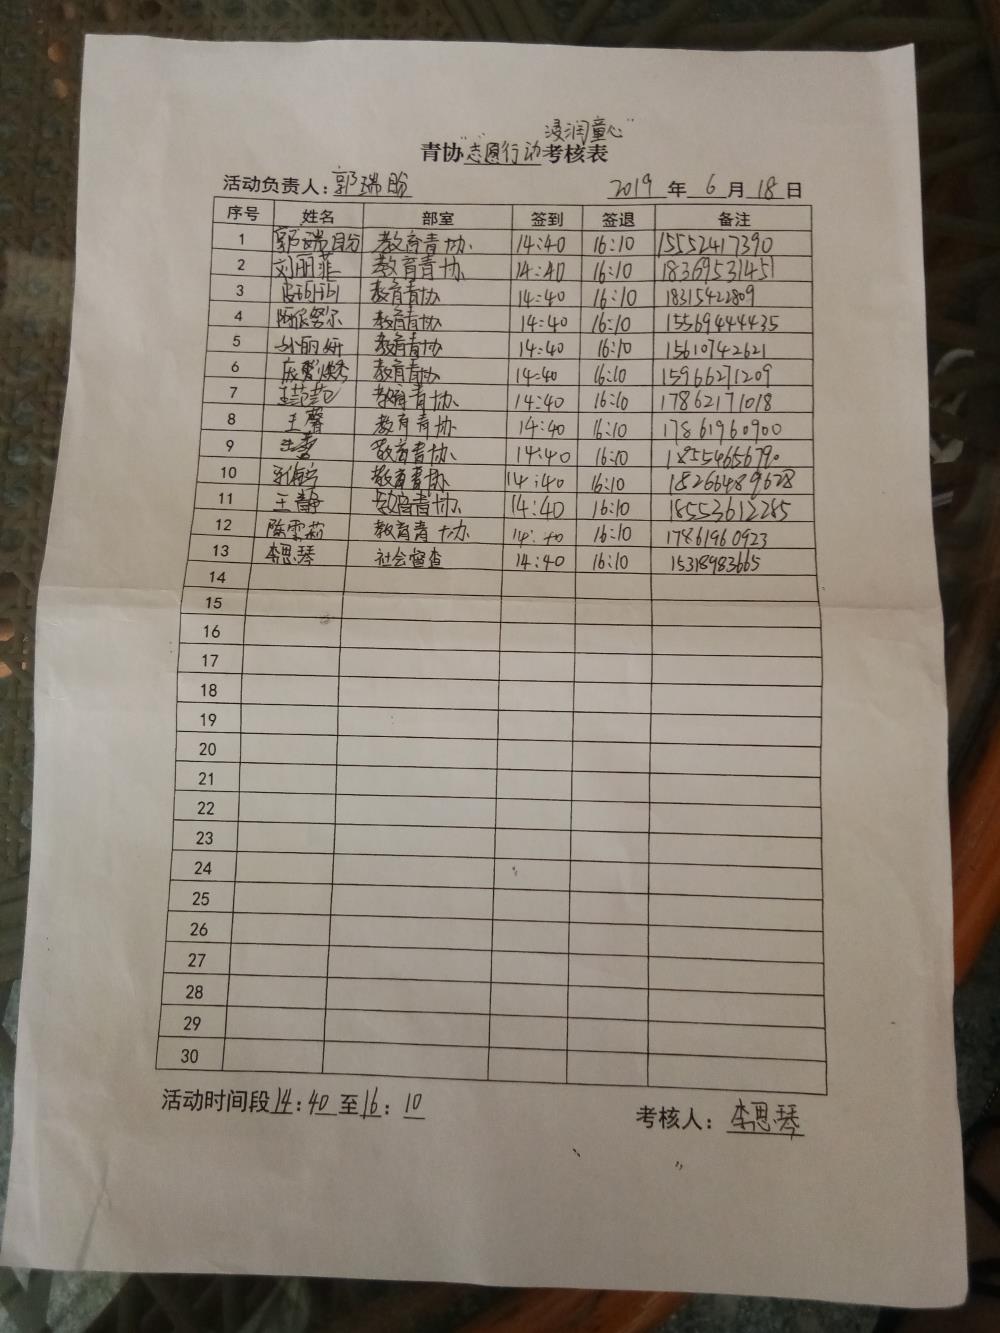 浸润童心"
青协"志愿行动考核表
活动负责人：郭瑞盼 2019 年 6 月 18 日
序号 姓名 部室 签到 签退 备注
1 郭瑞盼 教育青协 14:40 16:10 15552417390
2 刘丽菲 教育青协 14:40 16:10 18369531451
3 教育青协 14:40 16:10 18315422809
4 阿依努尔 教育青协 14:40 16:10 15569444435
5 孙丽妍 教育青协 14:40 16:10 15610742621
6 教育青协 14:40 16:10 15966271209
7 王范范 教育青协 14:40 16:10 17862171018
8 王馨 教育青协 14:40 16:10 17861960900
9 教育青协 14:40 16:10 18554656790
10 教育青协 14:40 16:10 18266489628
11 王静 教育青协 14:40 16:10 18553612285
12 陈雪莉 教育青协 14:40 16:10 17861960923
13 李思琴 社会督查 14:40 16:10 15318983665
14
15
16
17
18
19
20
21
22
23
24
25
26
27
28
29
30
活动时间段14：40至16：10
考核人：李思琴